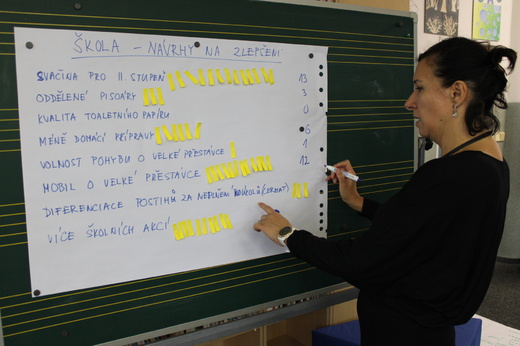 ŠKOLA - NÁVRHY NA ZLEPŠENÍ
SVAČINA PRO II. STUPEŇ 13
ODDĚLENÉ PISOÁRY 3
KVALITA TOALETNÍHO PAPÍRU 0
MÉNĚ DOMÁCÍ PŘÍPRAVY 6
VOLNOST POHYBU O VELKÉ PŘESTÁVCE 1
MOBIL O VELKÉ PŘESTÁVCE 12
DIFERENCIACE POSTIHŮ ZA NEPLNĚNÍ
VÍCE ŠKOLNÍCH AKCÍ